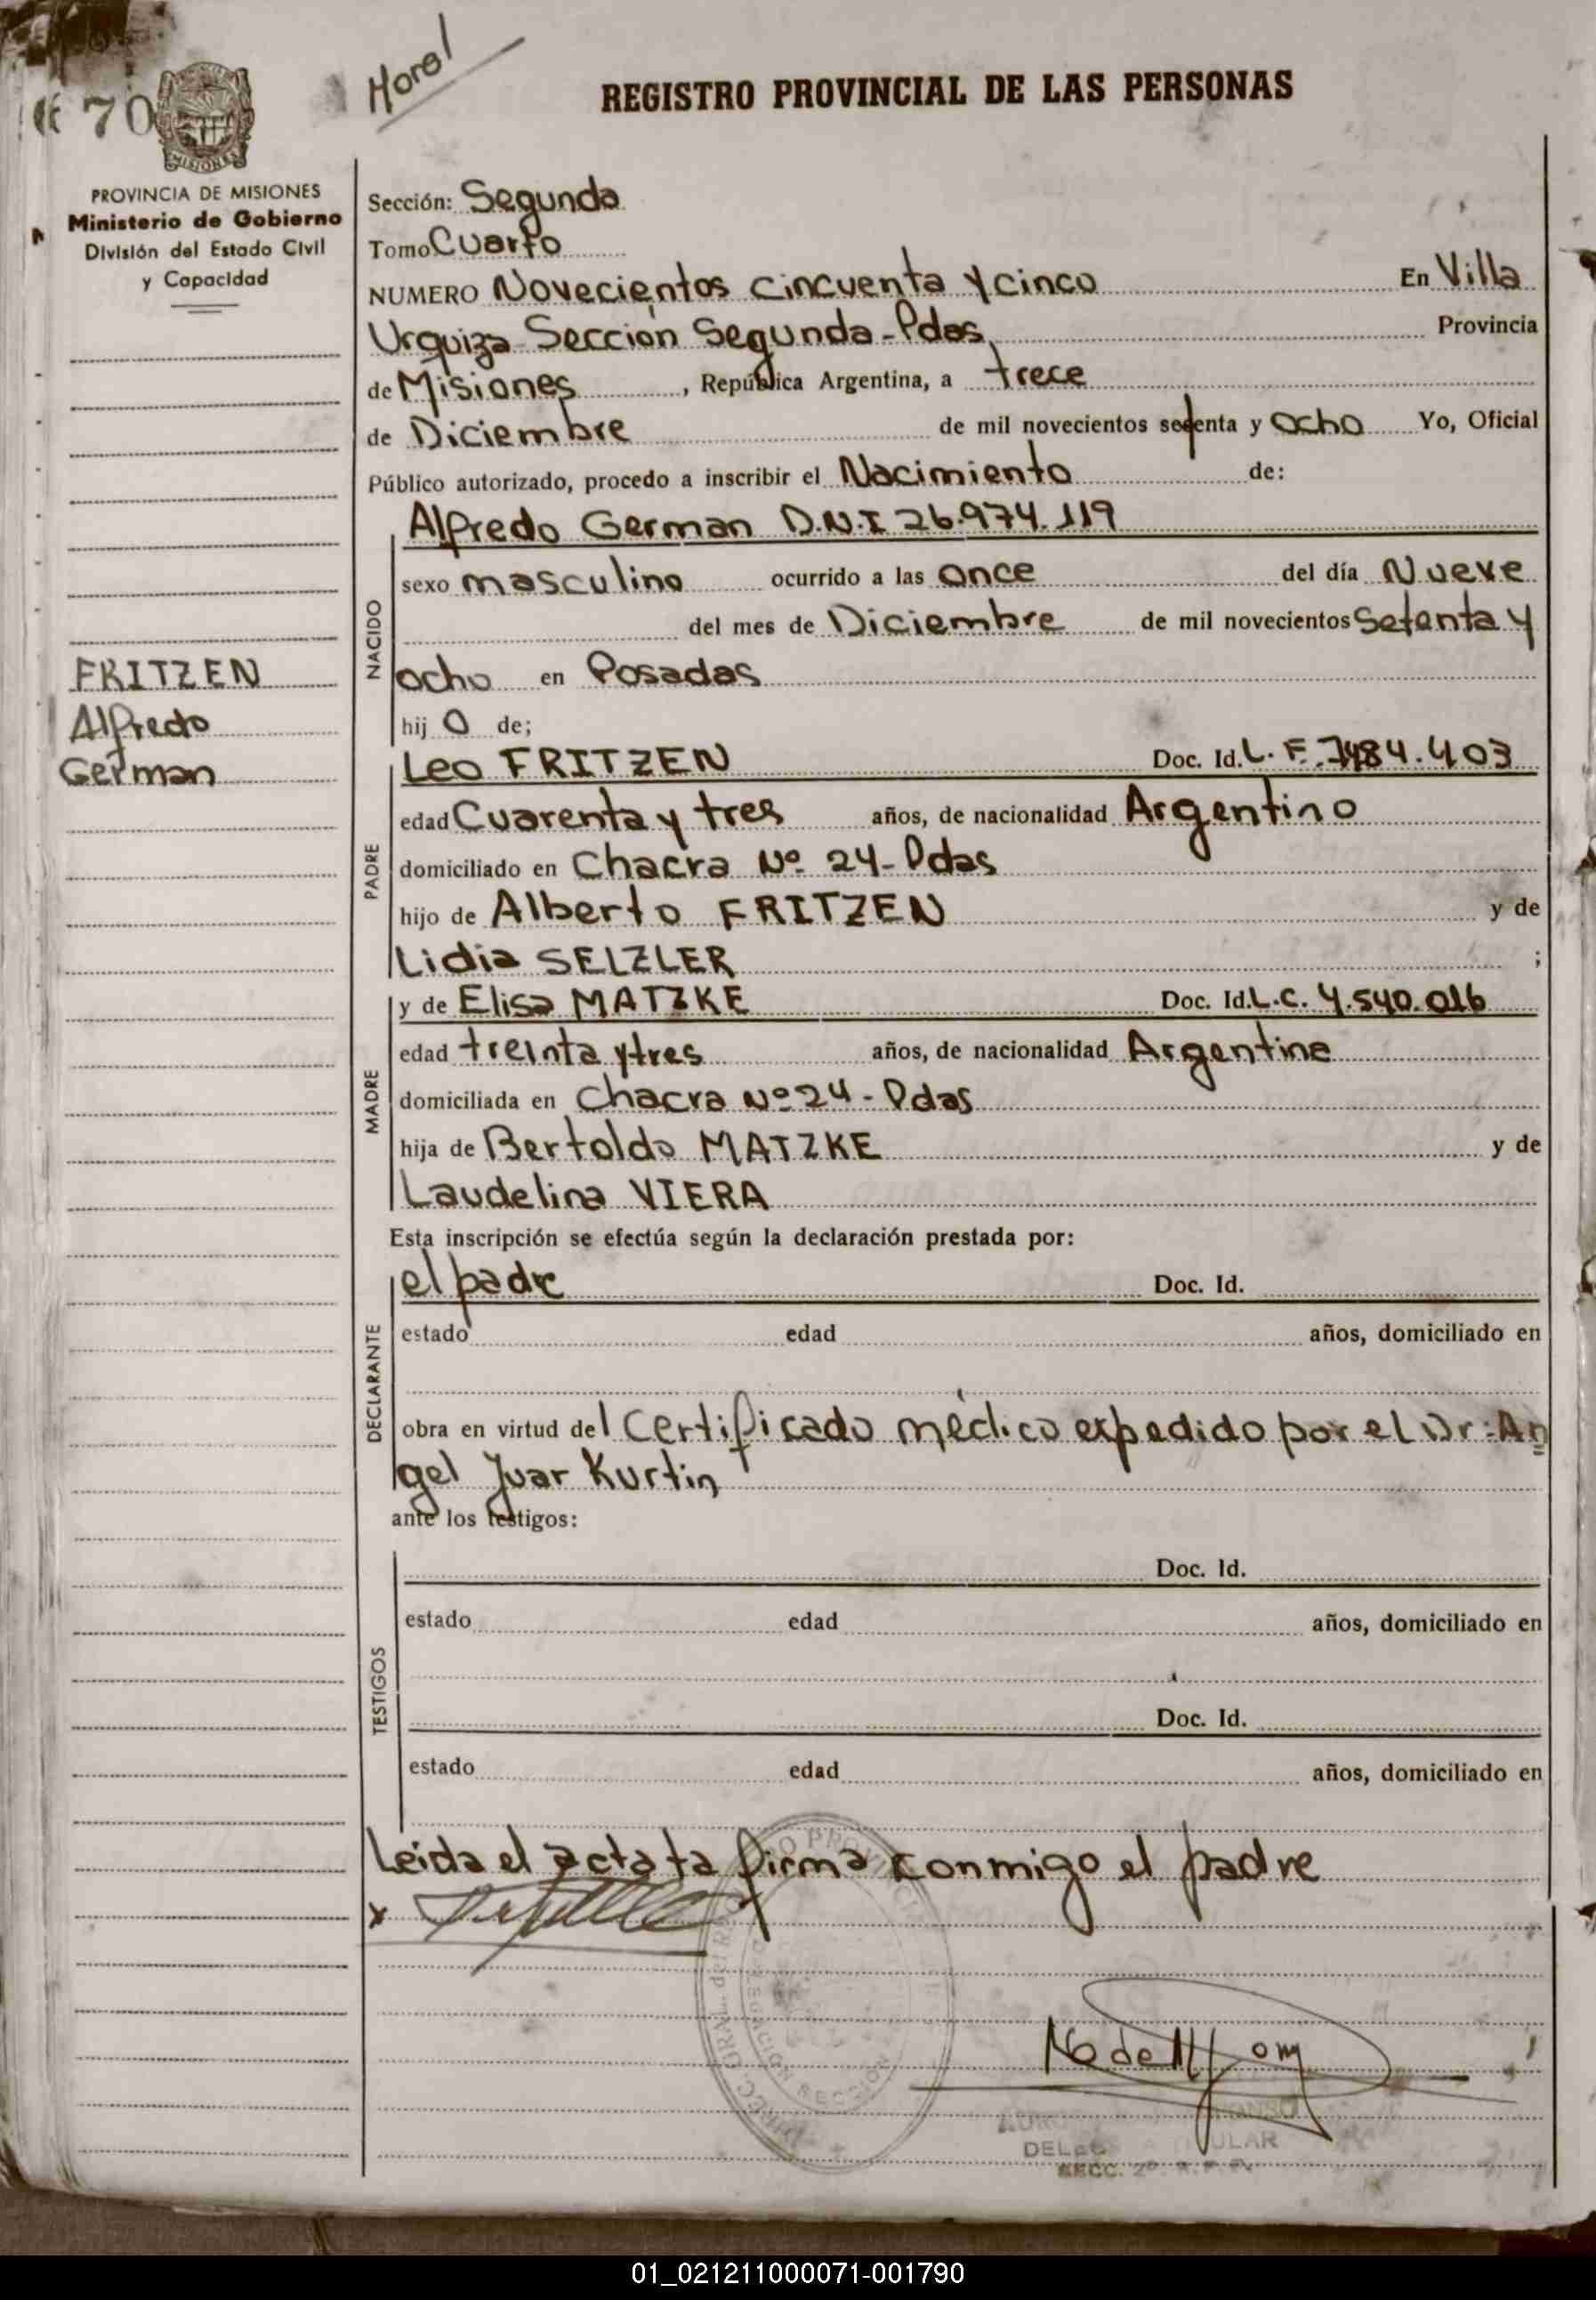 Horal
REGISTRO PROVINCIAL DE LAS PERSONAS
70
MISIONES
PROVINCIA DE MISIONES
Ministerio de Gobierno
División del Estado Civil
y Capacidad
FRITZEN
Alfredo
German
Sección: Segunda
Tomo Cuarto
NUMERO Novecientos cincuenta y cinco En Villa
Urquiza Sección Segunda - Pdas, Provincia
de Misiones, República Argentina, a trece
de Diciembre de mil novecientos setenta y ocho Yo, Oficial
Público autorizado, procedo a inscribir el Nacimiento de:
NACIDO
Alfredo German D.N.I 26.974.119
sexo masculino ocurrido a las once del día Nueve
del mes de Diciembre de mil novecientos Setenta y
ocho en Posadas
hij o de;
PADRE
Leo FRITZEN Doc. Id. L. E. 7484.403
edad Cuarenta y tres años, de nacionalidad Argentino
domiciliado en Chacra Nº 24 - Pdas
hijo de Alberto FRITZEN y de
Lidia SELZLER ;
MADRE
y de Elisa MATZKE Doc. Id. L.C. 4.540.016
edad treinta y tres años, de nacionalidad Argentina
domiciliada en Chacra Nº 24 - Pdas
hija de Bertoldo MATZKE y de
Laudelina VIERA
Esta inscripción se efectúa según la declaración prestada por:
DECLARANTE
el padre Doc. Id.
estado edad años, domiciliado en
obra en virtud del Certificado médico expedido por el Dr: An
gel Juar Kurtin
ante los testigos:
TESTIGOS
Doc. Id.
estado edad años, domiciliado en
Doc. Id.
estado edad años, domiciliado en
Leida el acta ta firma conmigo el padre
x
SECC. 2º
01_021211000071-001790